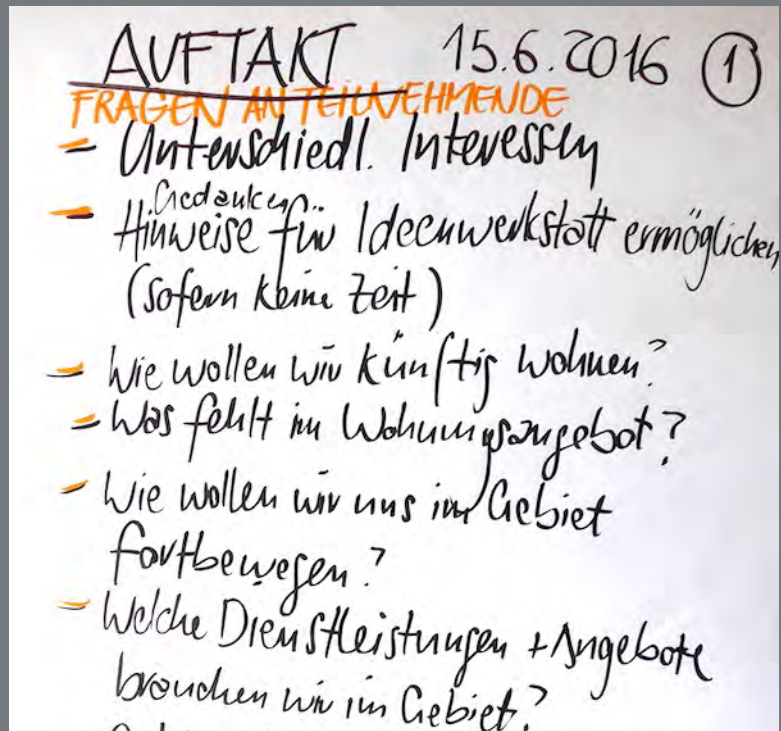 AUFTAKT 15.6.2016 ①
FRAGEN AN TEILNEHMENDE
- Unterschiedl. Interessen
Gedanken
- Hinweise für Ideenwerkstatt ermöglichen
(sofern keine Zeit)
- Wie wollen wir künftig wohnen?
- Was fehlt im Wohnungsangebot?
- Wie wollen wir uns im Gebiet
fortbewegen?
- Welche Dienstleistungen + Angebote
brauchen wir im Gebiet?